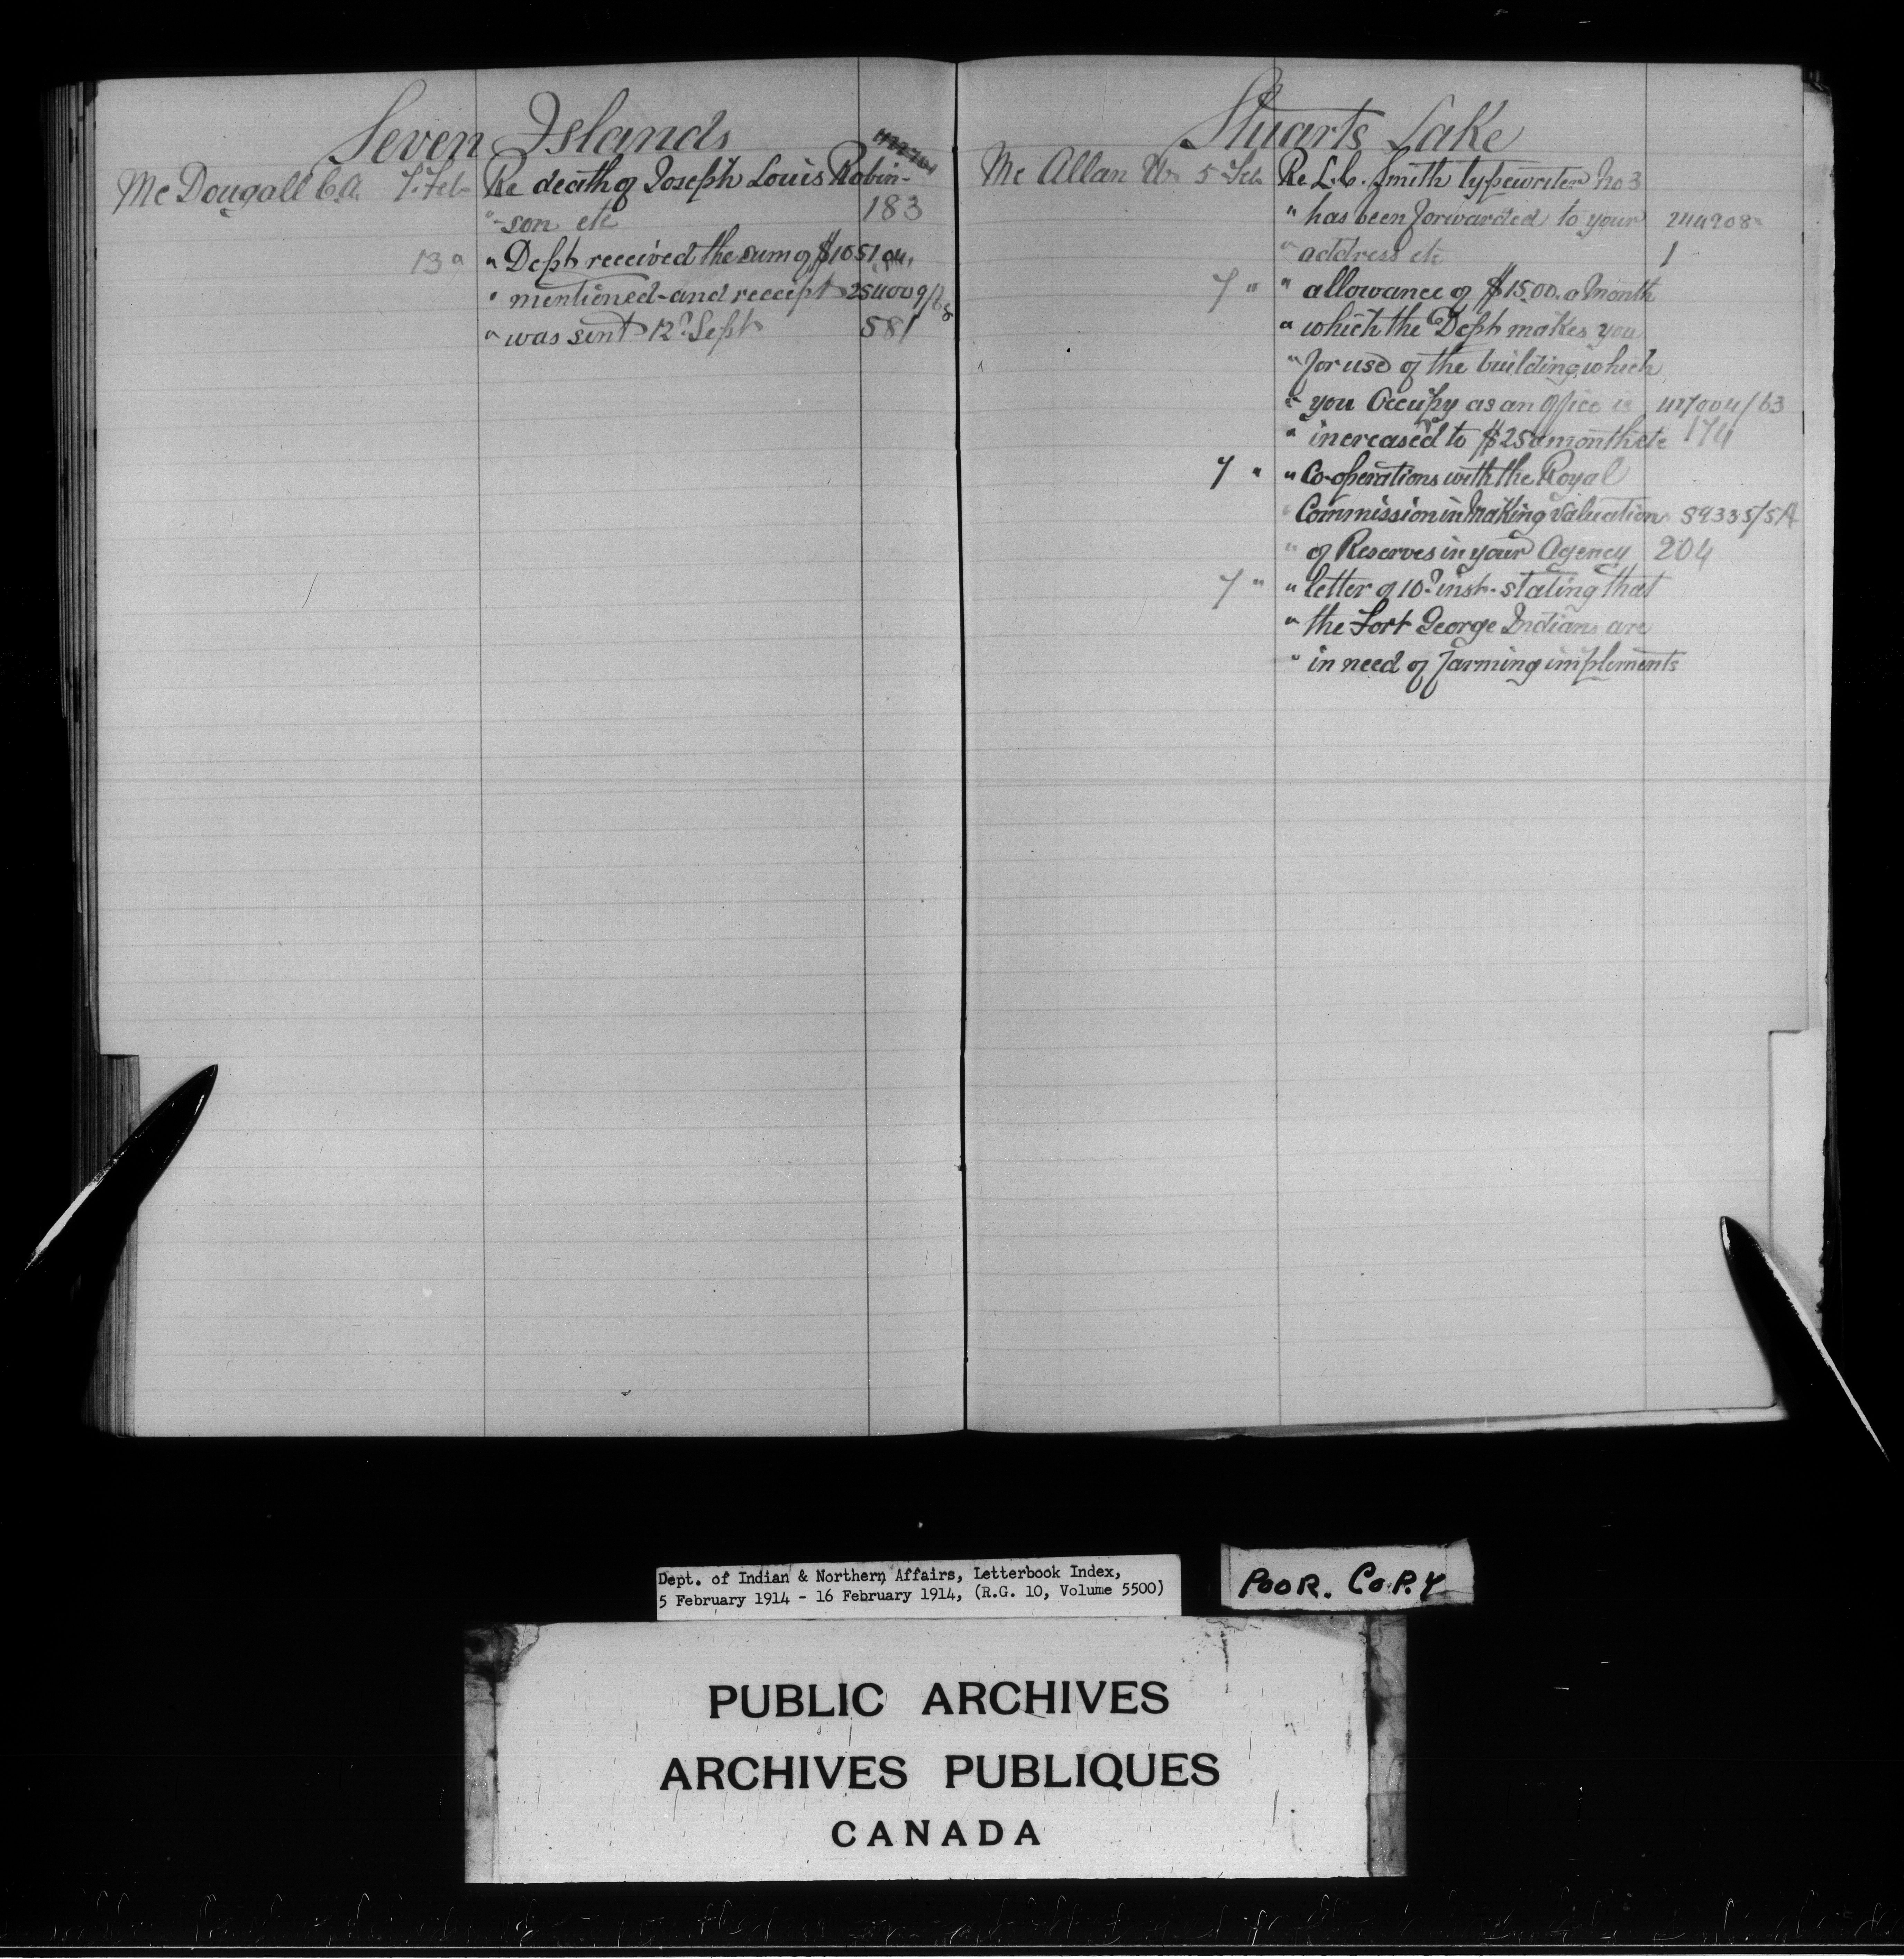 Seven Islands
McDougall C.A. 7. Feb Re death of Joseph Louis Robin-
"-son etc 183
13 " " Dept received the sum of $1051.04,
" mentioned-and receipt 254009/68
" was sent 12? Sept 581
Stuarts Lake
Mc Allan W. 5 Feb Re L.C. Smith typewriter No 3
" has been forwarded to your 244908
" address etc 1
7 " " allowance of $15.00. a Month
" which the Dept makes you
" for use of the building, which
" you Occupy as an Office is 427004/63
" increased to $25 a month etc 174
7 " " Co-operations with the Royal
" Commission in Making Valuation 59335/5A
" of Reserves in your Agency 204
7 " " letter of 10? inst. stating that
" the Fort George Indians are
" in need of farming implements
Dept. of Indian & Northern Affairs, Letterbook Index,
5 February 1914 - 16 February 1914, (R.G. 10, Volume 5500)
POOR. COPY
PUBLIC ARCHIVES
ARCHIVES PUBLIQUES
CANADA